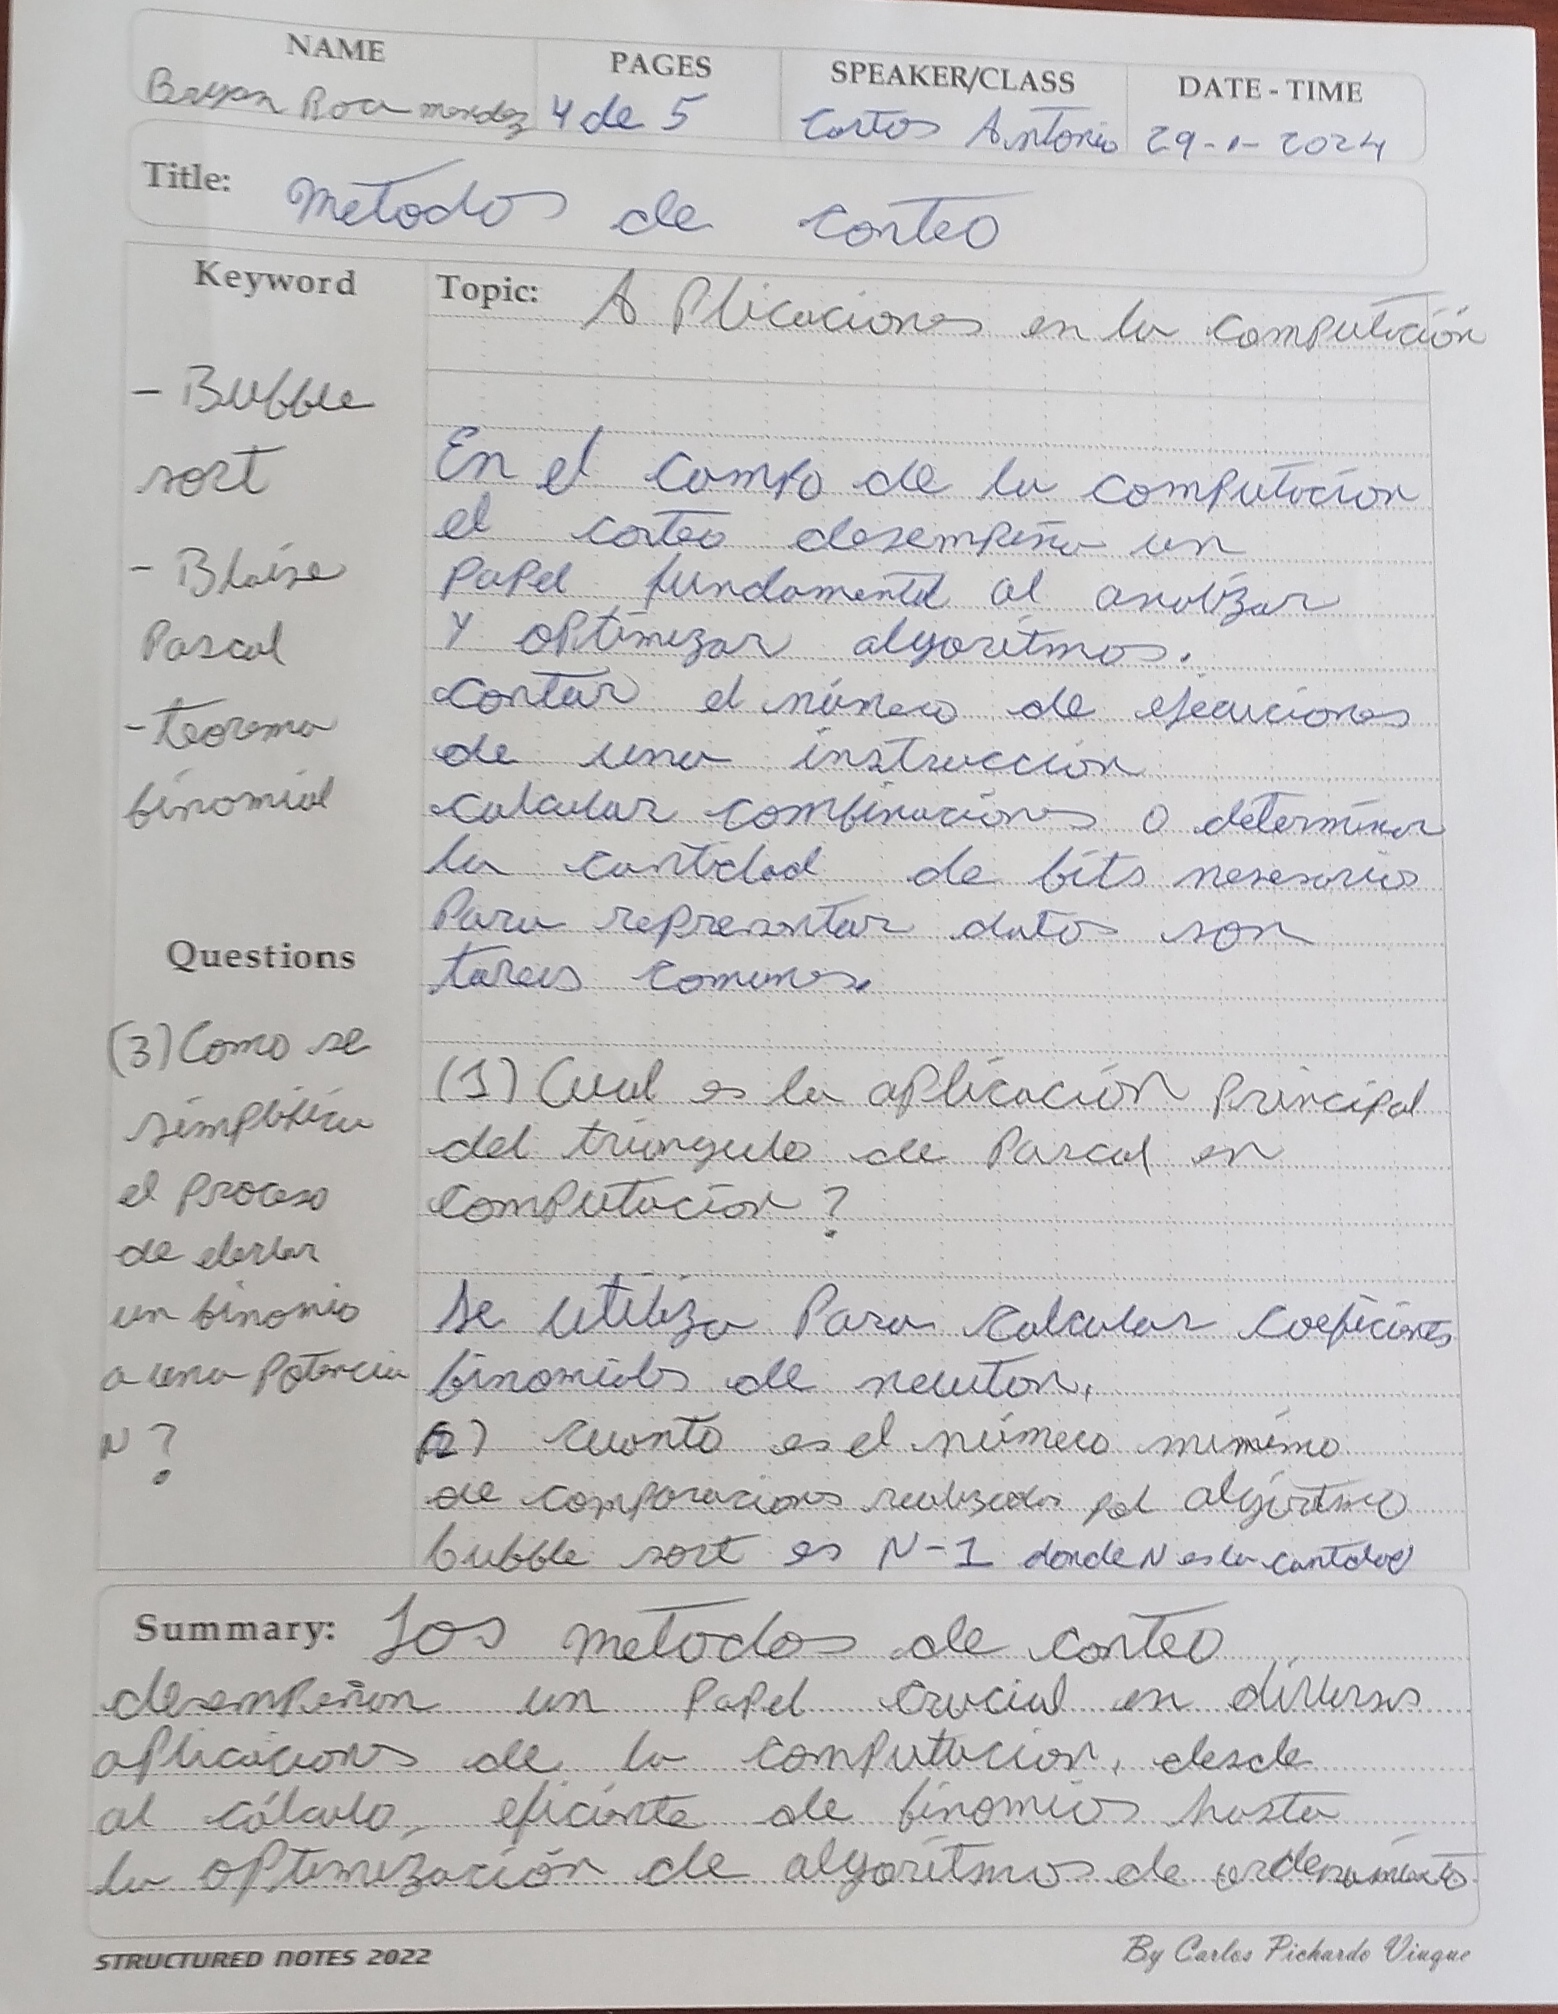 NAME
PAGES
SPEAKER/CLASS
DATE - TIME
Bryan Roca mendez
4 de 5
Carlos Antonio
29-1-2024
Title: Metodos de conteo
Keyword
- Bubble
sort
- Blaise
Pascal
- teorema
binomial
Questions
(3) Como se
simplifica
el proceso
de elevar
un binomio
a una potencia
N?
Topic: Aplicaciones en la computación
En el campo de la computación
el conteo desempeña un
papel fundamental al analizar
y optimizar algoritmos.
contar el número de ejecuciones
de una instrucción
calcular combinaciones o determinar
la cantidad de bits nesesarios
Para representar datos son
tareas comunes.
(1) Cual es la aplicación principal
del triangulo de Pascal en
computacion?
Se utiliza Para calcular coeficientes
binomiales de newton.
(2) cuanto es el número minimo
de comparaciones realizadas por algoritmo
bubble sort es N-1 donde N es la cantidad
Summary: Los metodos de conteo
desempeñan un papel crucial en diversas
aplicaciones de la computacion, desde
al cálculo, eficiente de binomios hasta
la optimización de algoritmos de ordenamiento
STRUCTURED NOTES 2022
By Carlos Pichardo Viuque